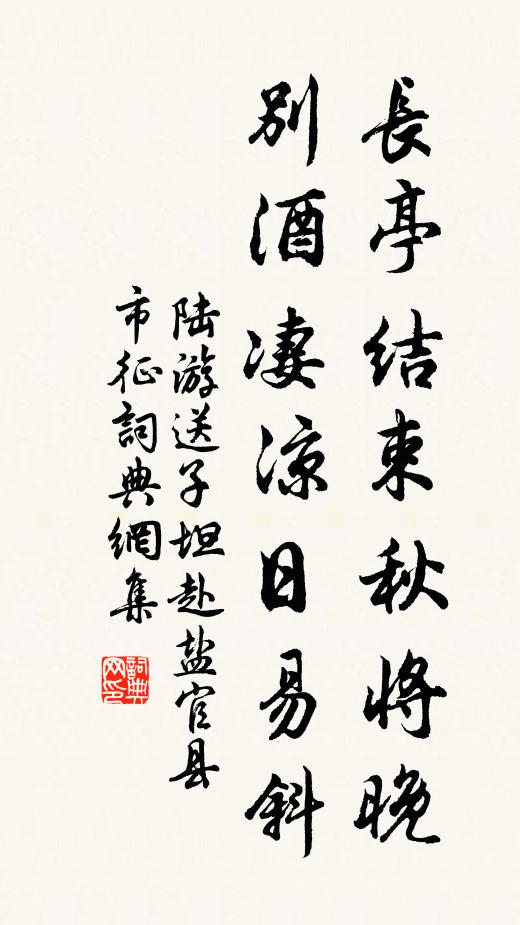 長亭结束秋将晚
别酒凄凉日易斜
陆游送子坦赴盐官县
市征詞典網集
詞典網印